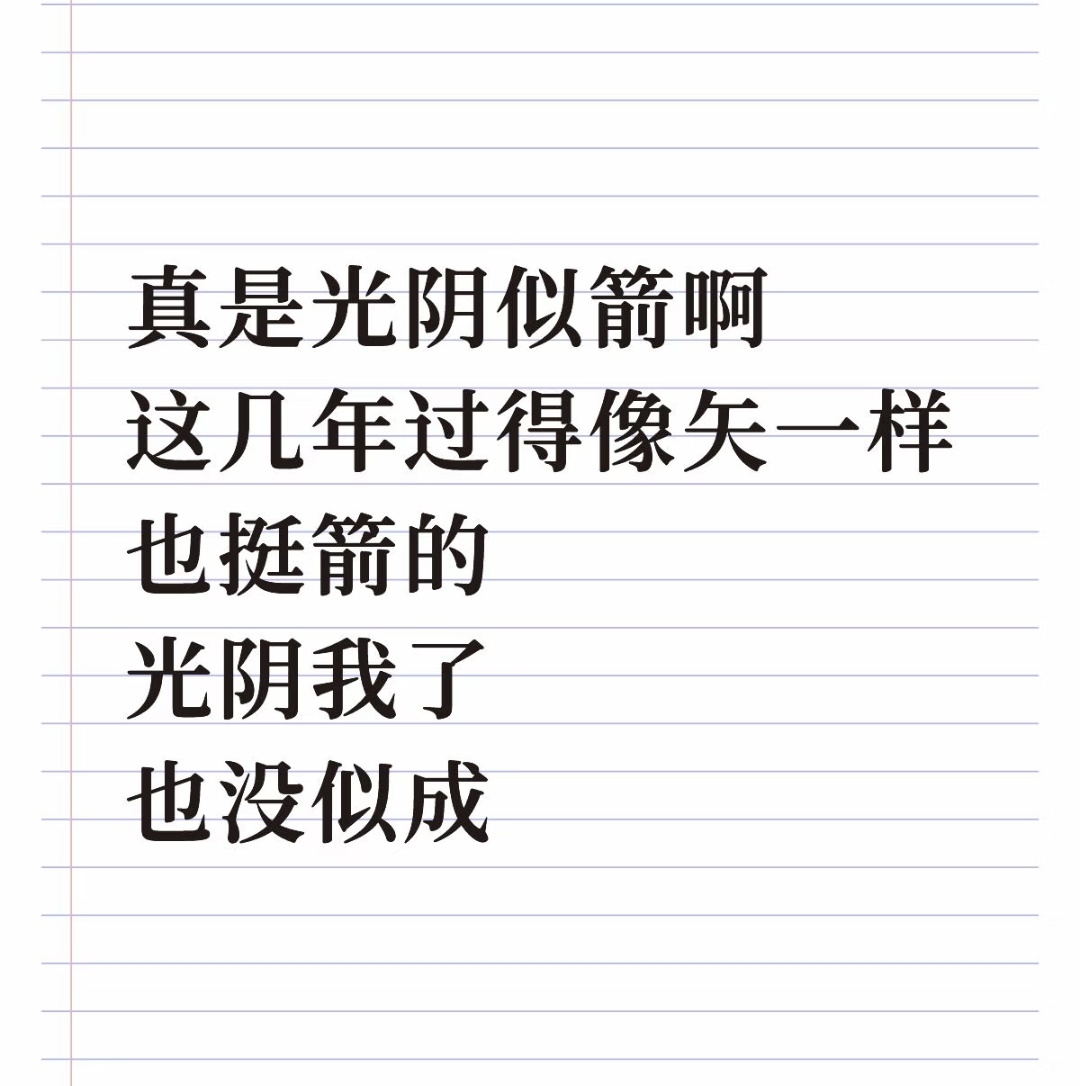 真是光阴似箭啊
这几年过得像矢一样
也挺箭的
光阴我了
也没似成